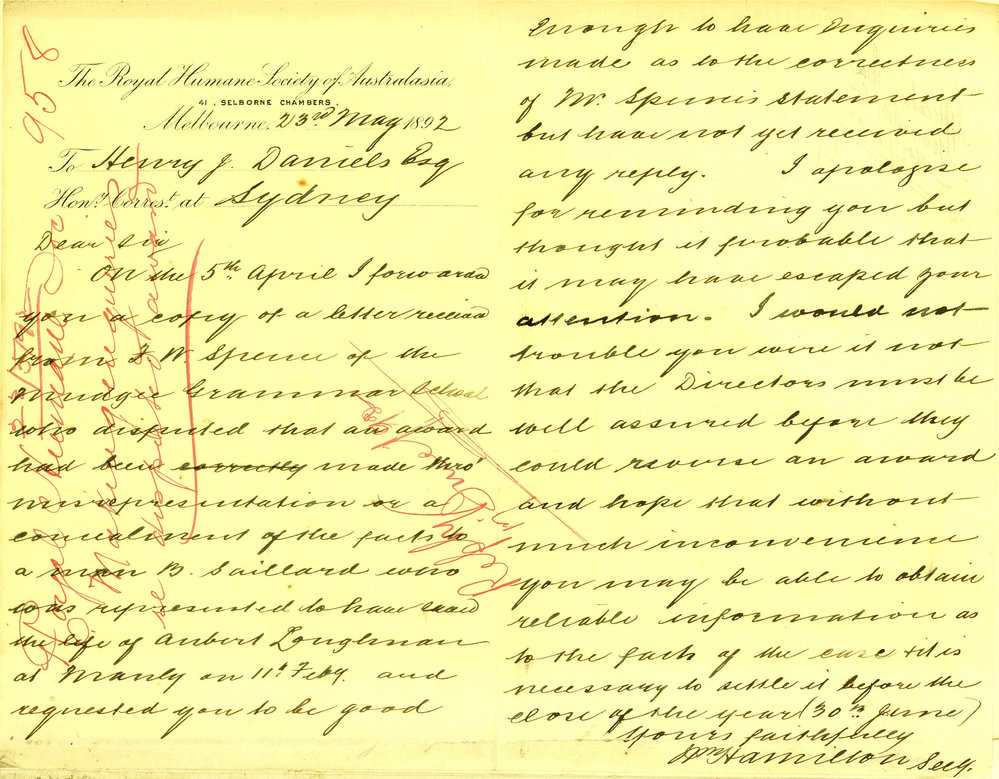 The Royal Humane Society of Australasia,
41, SELBORNE CHAMBERS,
Melbourne, 23rd May 1892
To Henry J. Daniels Esq
Hony. Correst. at Sydney
Dear Sir
On the 5th April I forwarded
you a copy of a letter received
from W Spence of the
Mudgee Grammar School
who disputed that an award
had been correctly made thro'
misrepresentation or a
concealment of the facts to
a man B. Saillard who
was represented to have saved
the life of Aubert Loughman
at Manly on 11th Feby. and
requested you to be good
enough to have Inquiries
made as to the correctness
of Mr. Spence's statement
but have not yet received
any reply. I apologise
for reminding you but
thought it probable that
it may have escaped your
attention. I would not
trouble you were it not
that the Directors must be
well assured before they
could reverse an award
and hope that without
much inconvenience
you may be able to obtain
reliable information as
to the facts of the case & it is
necessary to settle it before the
close of the year (30th June)
Yours faithfully
Wm Hamilton Secy.
958
Royal Humane Soc
Making enquiries
re disputed award
Reply